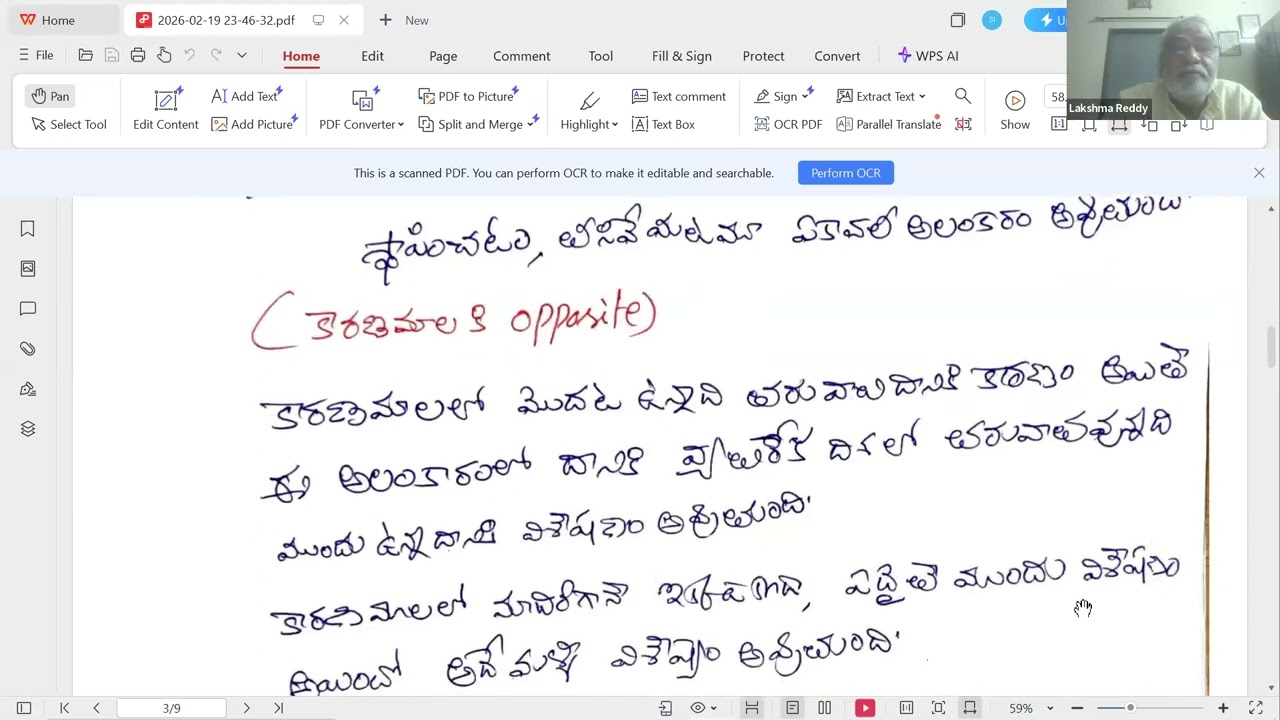 Home
2026-02-19 23-46-32.pdf
New
File
Home Edit Page Comment Tool Fill & Sign Protect Convert WPS AI
Pan
Select Tool
Edit Content
Add Text
Add Picture
PDF Conver
PDF to Picture
Split and Merge
Highlight
Text comment
Text Box
Sign
OCR PDF
Extract Text
Parallel Translate
Show
58
1:1
Lakshma Reddy
This is a scanned PDF. You can perform OCR to make it editable and searchable.
Perform OCR
స్థాపించటం, తీసివేయటమూ ఏకావలీ అలంకారం అవుతుంది
(కారణమాల కి opposite)
కారణమాలలో మొదట ఉన్నది తరువాతదానికి కారణం అయితే
ఈ అలంకారంలో దానికి వ్యతిరేక దిశలో తరువాతవున్నది
ముందు ఉన్నదానికి విశేషణం అవుతుంది.
కారణమాలలో మాదిరిగానే ఇక్కడ కూడా, ఏదైతే ముందు విశేషణం
అయిందో అదే మళ్ళీ విశేష్యం అవుతుంది.
3/9
59%